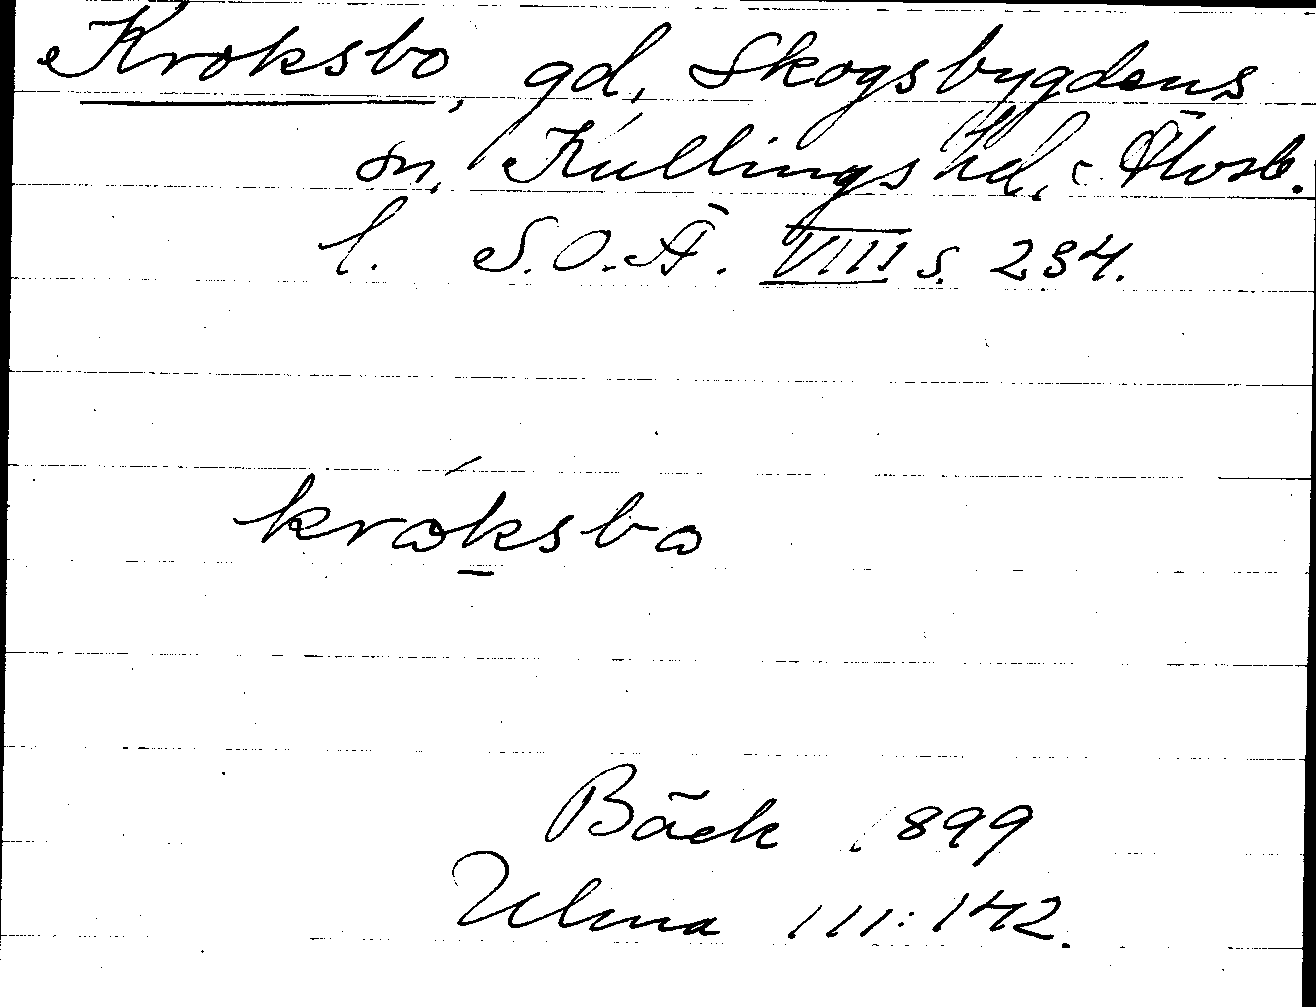 Kroksbo, gd, Skogsbygdens
sn, Kullings hd, Älvsb.
l. S.O.Ä. VIII s. 234.
króksbo
Bäck 1899
Ulma 111:142.